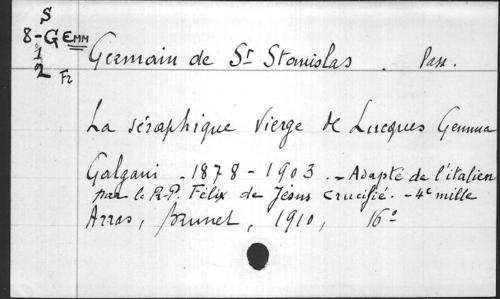 S
8-GEMM
1
2 Fr
Germain de St Stanislas . Pass.
La séraphique Vierge de Lucques Gemma
Galgani - 1878 - 1903. - Adapté de l'italien
par le R.P. Félix de Jésus crucifié. - 4e mille
Arras, Brunet, 1910, 16°